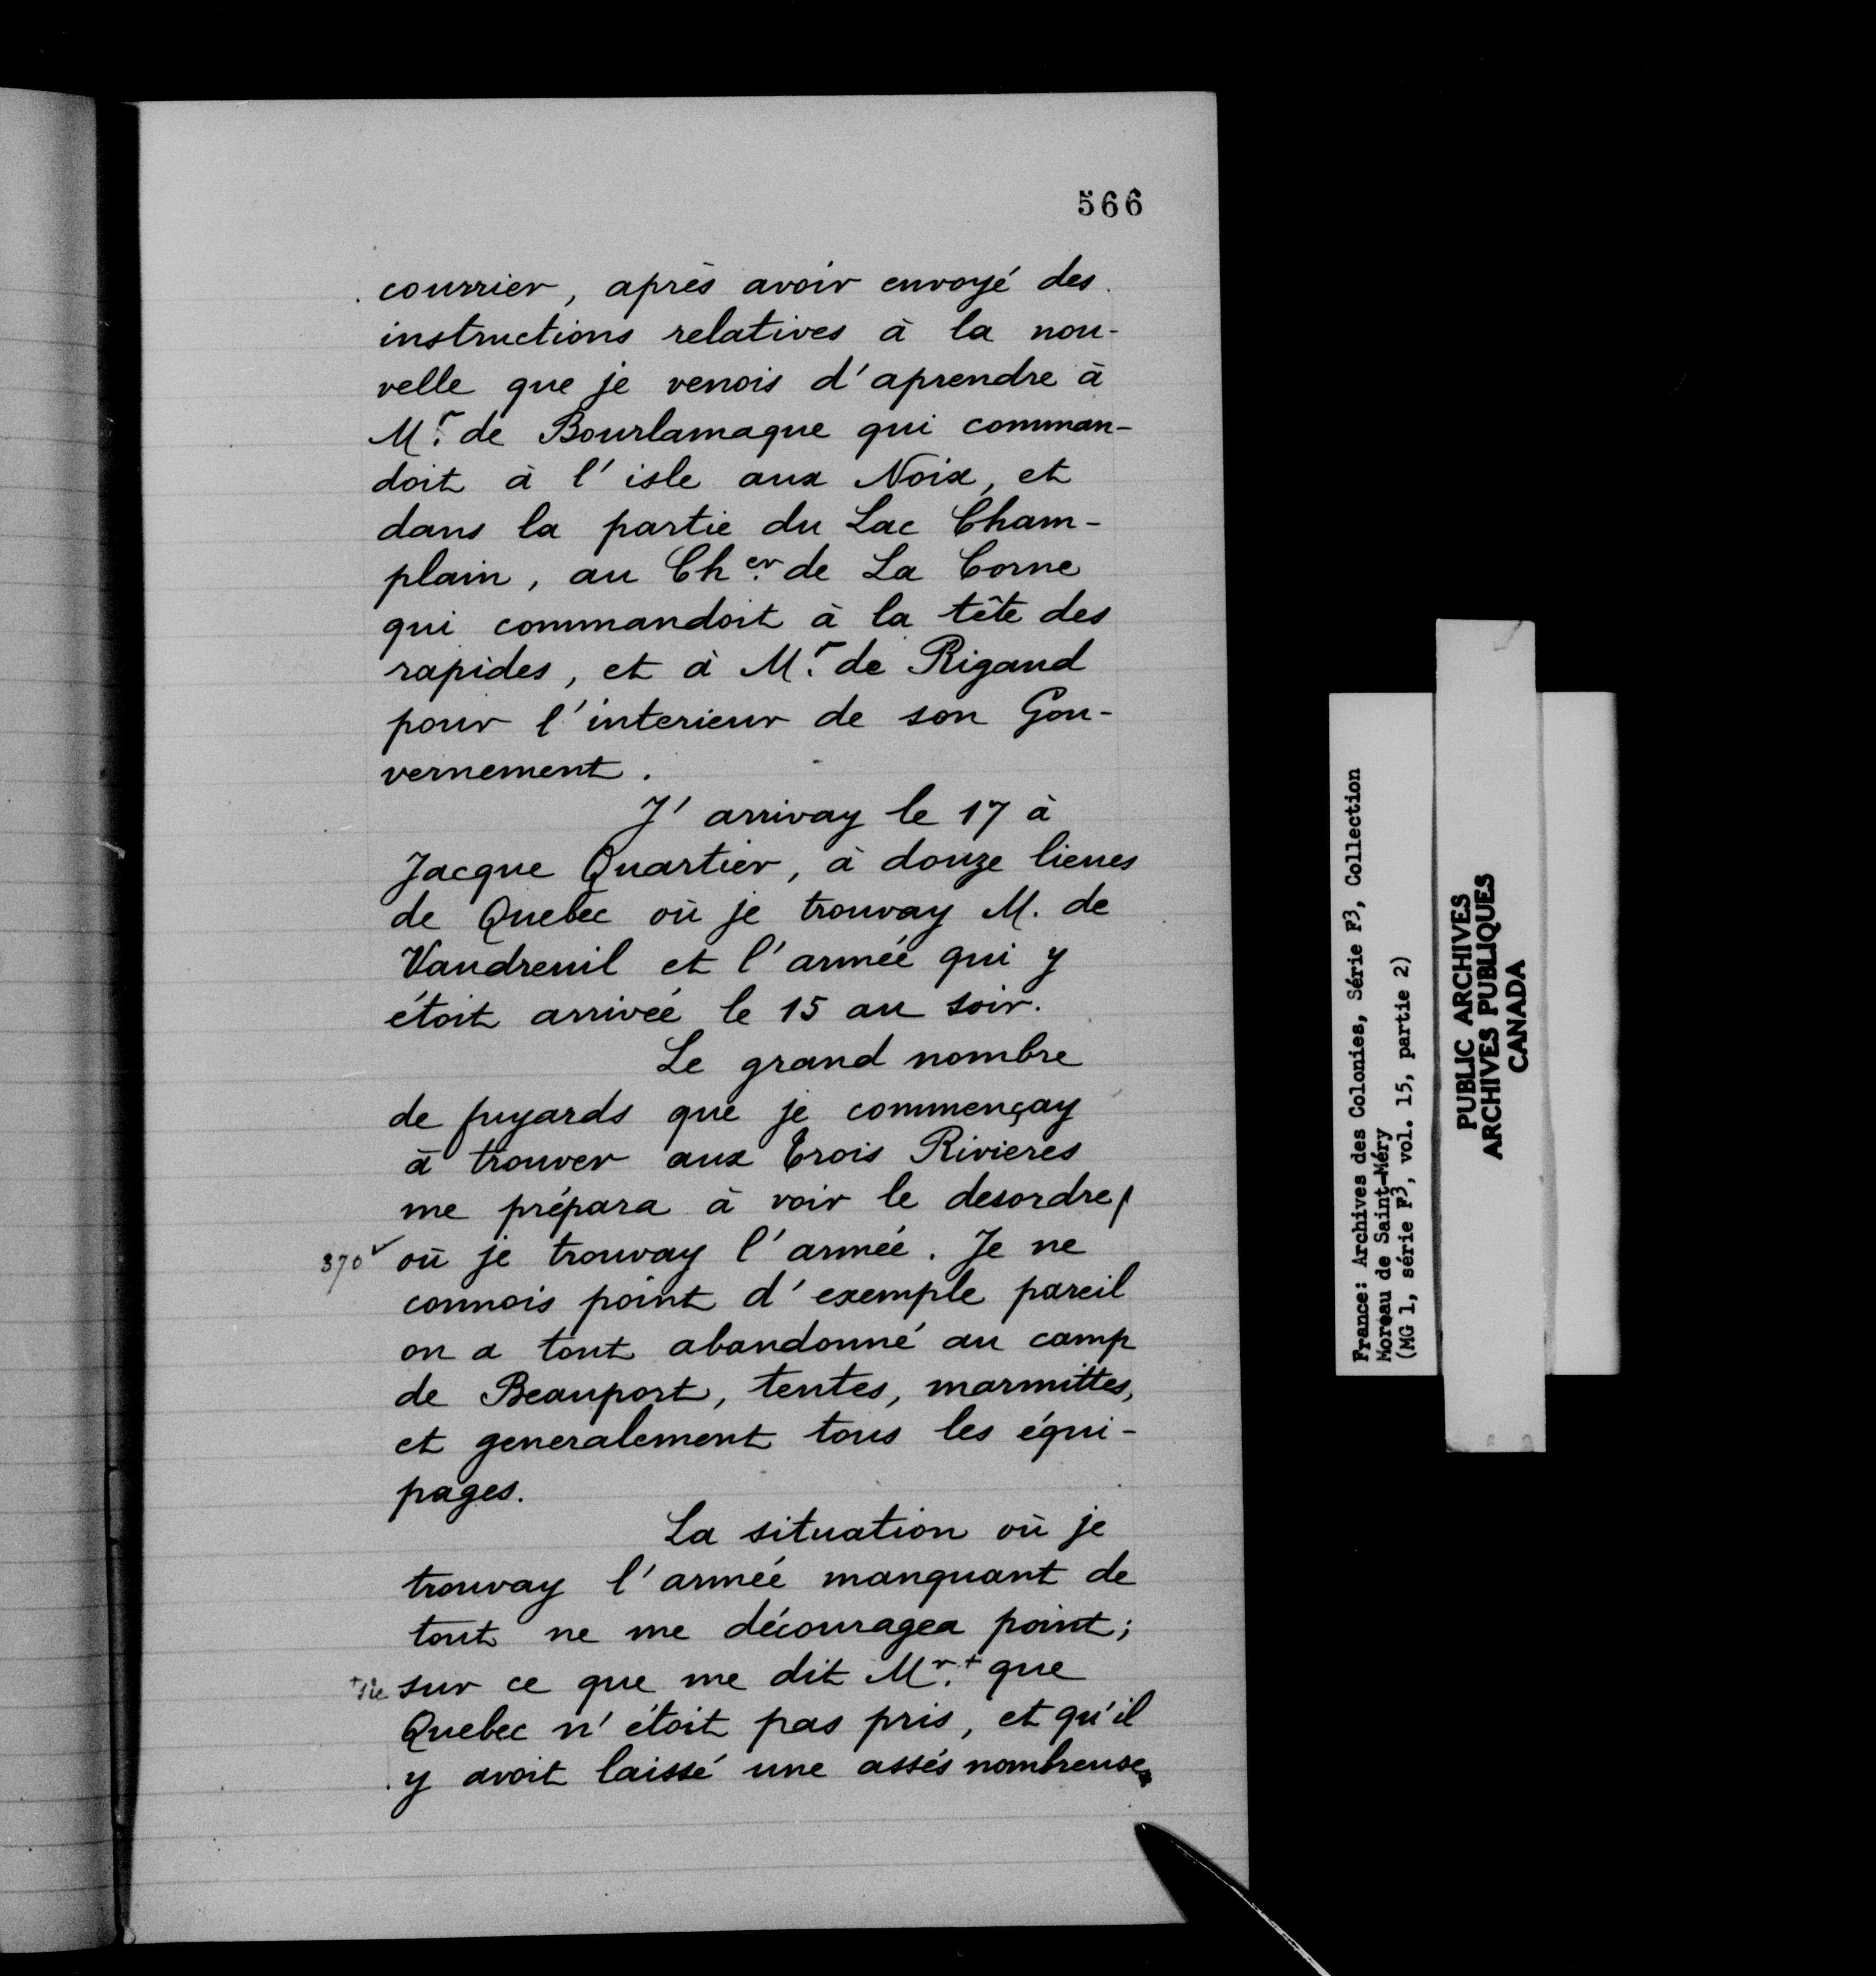 566
courrier, après avoir envoyé des
instructions relatives à la nou-
velle que je venois d'aprendre à
Mr. de Bourlamaque qui comman-
doit à l'isle aux Noix, et
dans la partie du Lac Cham-
plain, au Cher. de La Corne
qui commandoit à la tête des
rapides, et à Mr. de Rigaud
pour l'interieur de son Gou-
vernement.
J'arrivay le 17 à
Jacque Quartier, à douze lieues
de Quebec où je trouvay M. de
Vaudreuil et l'armée qui y
étoit arrivée le 15 au soir.
Le grand nombre
de fuyards que je commençay
à trouver aux Trois Rivieres
me prépara à voir le desordre/
370v où je trouvay l'armée. Je ne
connois point d'exemple pareil
on a tout abandonné au camp
de Beauport, tentes, marmittes,
et generalement tous les équi-
pages.
La situation où je
trouvay l'armée manquant de
tout ne me découragea point;
+sic sur ce que me dit Mr.+ que
Quebec n'étoit pas pris, et qu'il
y avoit laissé une assés nombreuse
France: Archives des Colonies, Série F3, Collection
Moreau de Saint-Méry
(MG 1, série F3, vol. 15, partie 2)
PUBLIC ARCHIVES
ARCHIVES PUBLIQUES
CANADA